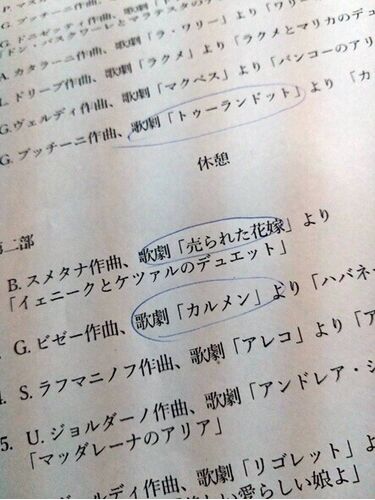 P. マス
G. プッチーニ作曲、歌劇
G. ドニゼッティ作曲、歌劇
「ドン・パスクワーレとマラテスタのデ
A. カタラーニ作曲、歌劇「ラ・ワリー」より「ワリー
L. ドリーブ作曲、歌劇「ラクメ」より「ラクメとマリカのデュ
G.ヴェルディ作曲、歌劇「マクベス」より「バンコーのアリ
G. プッチーニ作曲、歌劇「トゥーランドット」より 「カ
休憩
第二部
B. スメタナ作曲、歌劇「売られた花嫁」より
「イェニークとケツァルのデュエット」
G. ビゼー作曲、歌劇「カルメン」より「ハバネ
S. ラフマニノフ作曲、歌劇「アレコ」より「ア
5. U. ジョルダーノ作曲、歌劇「アンドレア・シ
「マッダレーナのアリア」
ヴェルディ作曲、歌劇「リゴレット」よ
愛らしい娘よ」